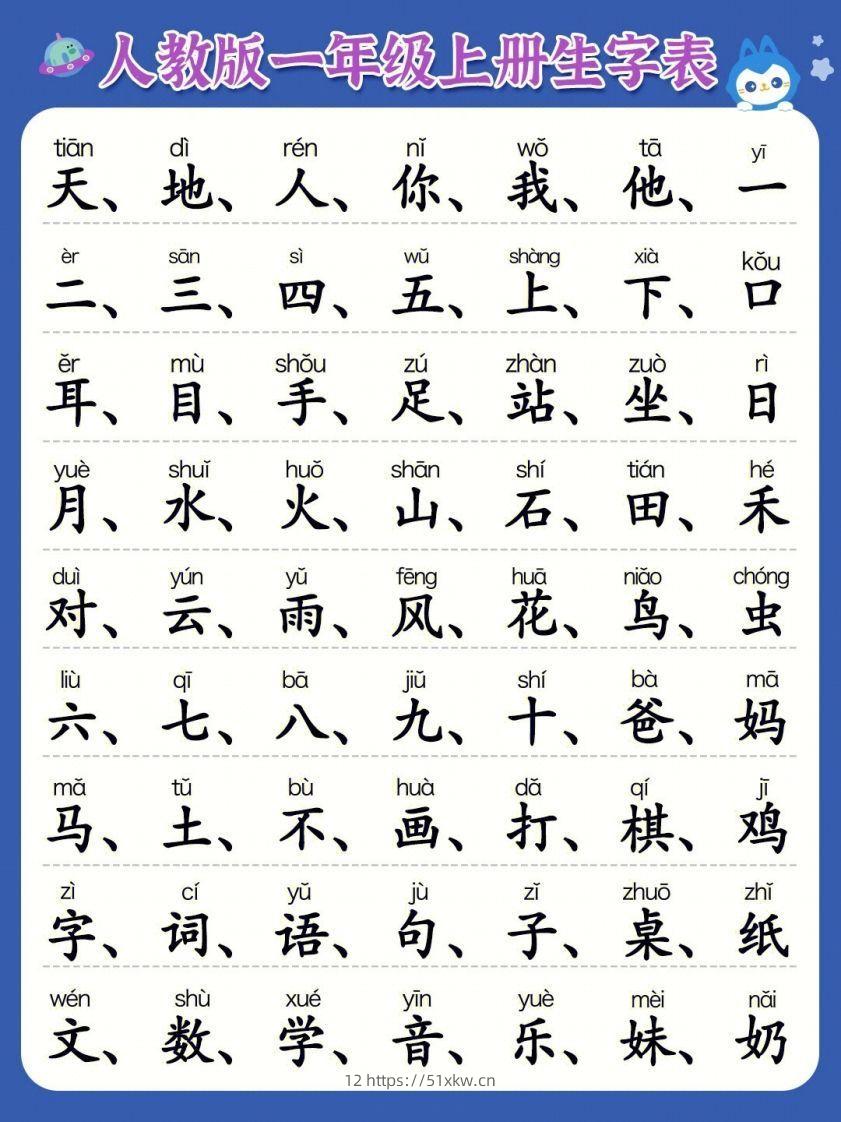 人教版一年级上册生字表
tiān dì rén nǐ wǒ tā yī
天、地、人、你、我、他、一
èr sān sì wǔ shàng xià kǒu
二、三、四、五、上、下、口
ěr mù shǒu zú zhàn zuò rì
耳、目、手、足、站、坐、日
yuè shuǐ huǒ shān shí tián hé
月、水、火、山、石、田、禾
duì yún yǔ fēng huā niǎo chóng
对、云、雨、风、花、鸟、虫
liù qī bā jiǔ shí bà mā
六、七、八、九、十、爸、妈
mǎ tǔ bù huà dǎ qí jī
马、土、不、画、打、棋、鸡
zì cí yǔ jù zǐ zhuō zhǐ
字、词、语、句、子、桌、纸
wén shù xué yīn yuè mèi nǎi
文、数、学、音、乐、妹、奶
12 https://51xkw.cn